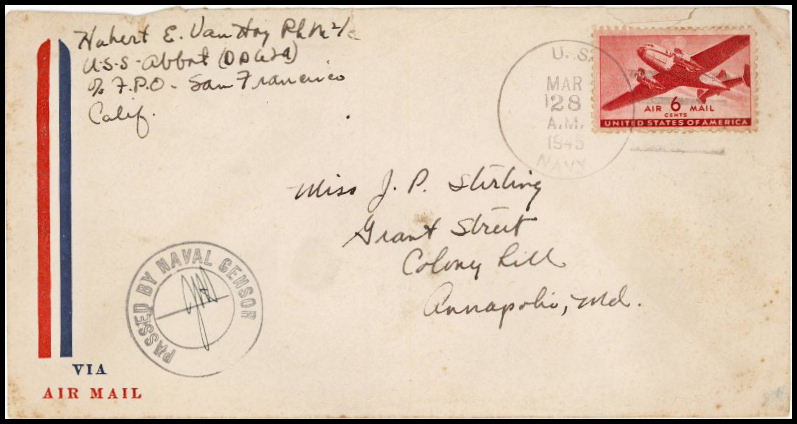 Hubert E. Van Hoy PhM 2/c
U-S-S- Abbot (DD629)
% F.P.O - San Francisco
Calif.
U.S.
MAR
28
A.M.
1945
NAVY
AIR 6 MAIL
CENTS
UNITED STATES OF AMERICA
Miss J. P. Stirling
Grant Street
Colony Hill
Annapolis, Md.
PASSED BY NAVAL CENSOR
VIA
AIR MAIL